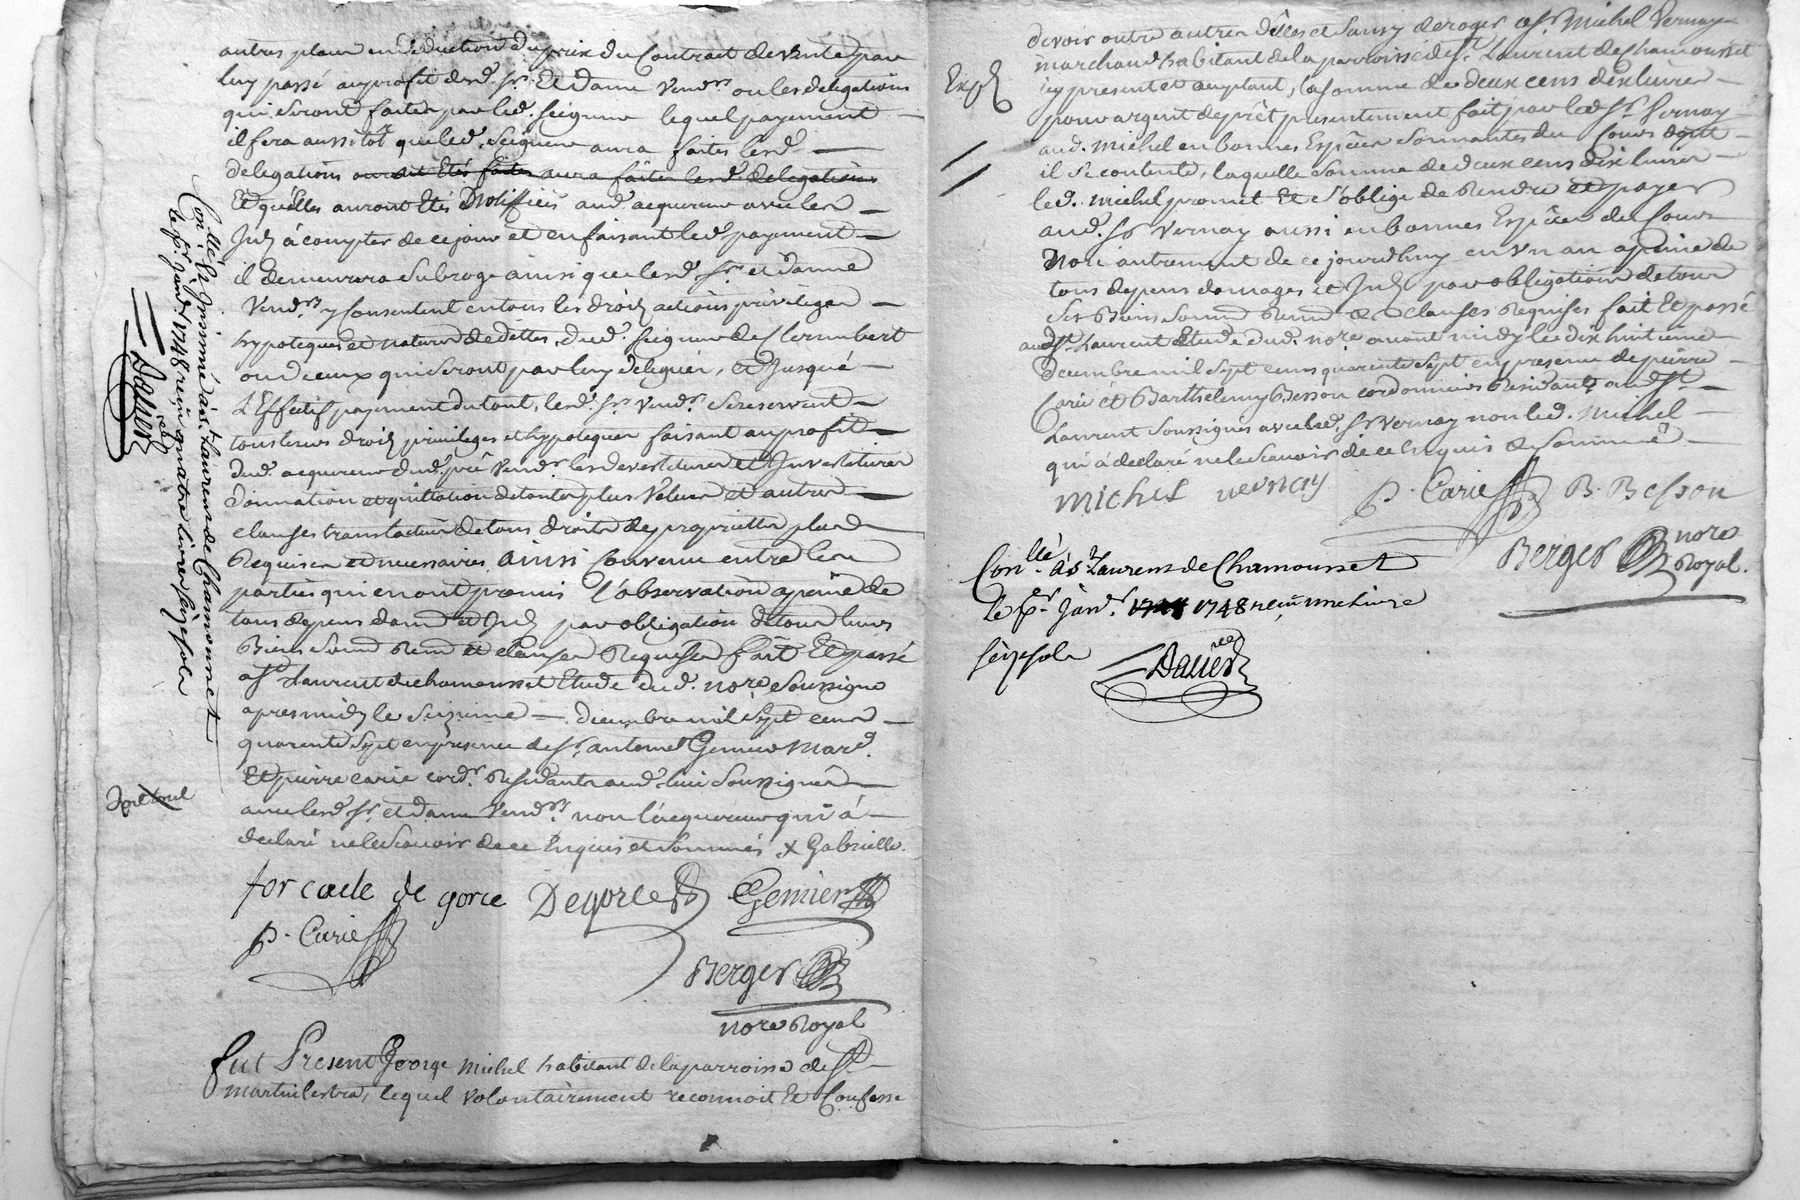 autres plans en deduction du prix du Contract de vente par
luy passé au profit desd. Sr. Et dame Vendrs ou les delegations
qui seront faites par led. seigneur lequel payement
il fera aussitôt que led. Seigneur aura faites lesd.
delegations auroit Etés faites aura faites lesd. delegations
Et quelles auront Etés Notiffiées aud. acquereur avec les
Jnd à compter de ce jour et en faisant led. payement
il demeurera subrogé ainsi que lesd. Sr. et dame
Vendrs y consentent en tous les droits actions privileges
hypoteques et nature de dettes dud. seigneur de
ou de ceux qui seront par luy delegués, et Jusqué
L'Effectif payement du tout, lesd. Srs Vendrs se reservent
tous leurs droits privileges et hypoteques faisant au profit
dud. acquereur dud. pré Vendu les devestitures et Jnvestitures
donnation et quittation de toutes plus Values et autres
clauses translatives de tous droits de proprietté plus
Requises et necessaires, ainsi Convenu entre les
parties qui en ont promis l'observation a peine de
tous depens domd et Jnd par obligation de tous leurs
Biens Soumd Renond et clauses Requises fait Et passé
a St Laurent de chamousset Etude dud. nore Soussigné
apres midy le Seizieme decembre mil Sept cens
quarente Sept en presence de Sr. antoine Gemier Mard.
Et pierre carié cordr Residants aud. lieu Soussignés
avec lesd. Sr. et dame Vendrs non l'acquereur qui à
declaré ne le scavoir de ce Enquis et sommés. X Gabrielle
forcade de gorce Degorce Gemier
p. Carié
Berger
nore Royal
fut Present George Michel habitant de la parroisse de St
Martin lestra, lequel volontairement reconnoit Et Confesse
Conllé & Jnsinué à St. Laurens de Chamousset
le pr. janvr 1748 reçu quatre livres seize sols
Dalier
devoir outre autres dettes et Sans y deroger a Sr Michel Vernay
marchand habitant de la parroisse de St. Laurent de Chamousset
icy present et aceptant, la somme de deux cens dix livres
Expd
pour argent de prêt presentement fait par led. Sr Vernay
aud. Michel en bonnes Espêces Sonnantes du Cours dont
il se contente, laquelle Somme de deux cens dix livres
led. Michel promet Et s'oblige de Rendre et payer
aud. Sr Vernay aussi en bonnes Espêces du Cours
Non autrement de ce jourdhuy en Vn an a peine de
tous depens domages et Jnd par obligation de tous
Ses Biens Soumd Renond & clauses Requises fait Et passé
aud St. Laurent Etude dud. nore avant midy le dix huitieme
decembre mil Sept cens quarente Sept en presence de pierre
Carié et Barthelemy Besson cordonniers Residants aud St
Laurent Soussignés avec led. Sr Vernay non led. Michel
qui à declaré ne le scavoir de ce Enquis & Sommé
Michel vernay p. Carié B. Besson
Berger nore Royal.
Conllé. à St Laurens de Chamousset
le pr. janvr. 1748 reçu une livre
seize sols
Dalier